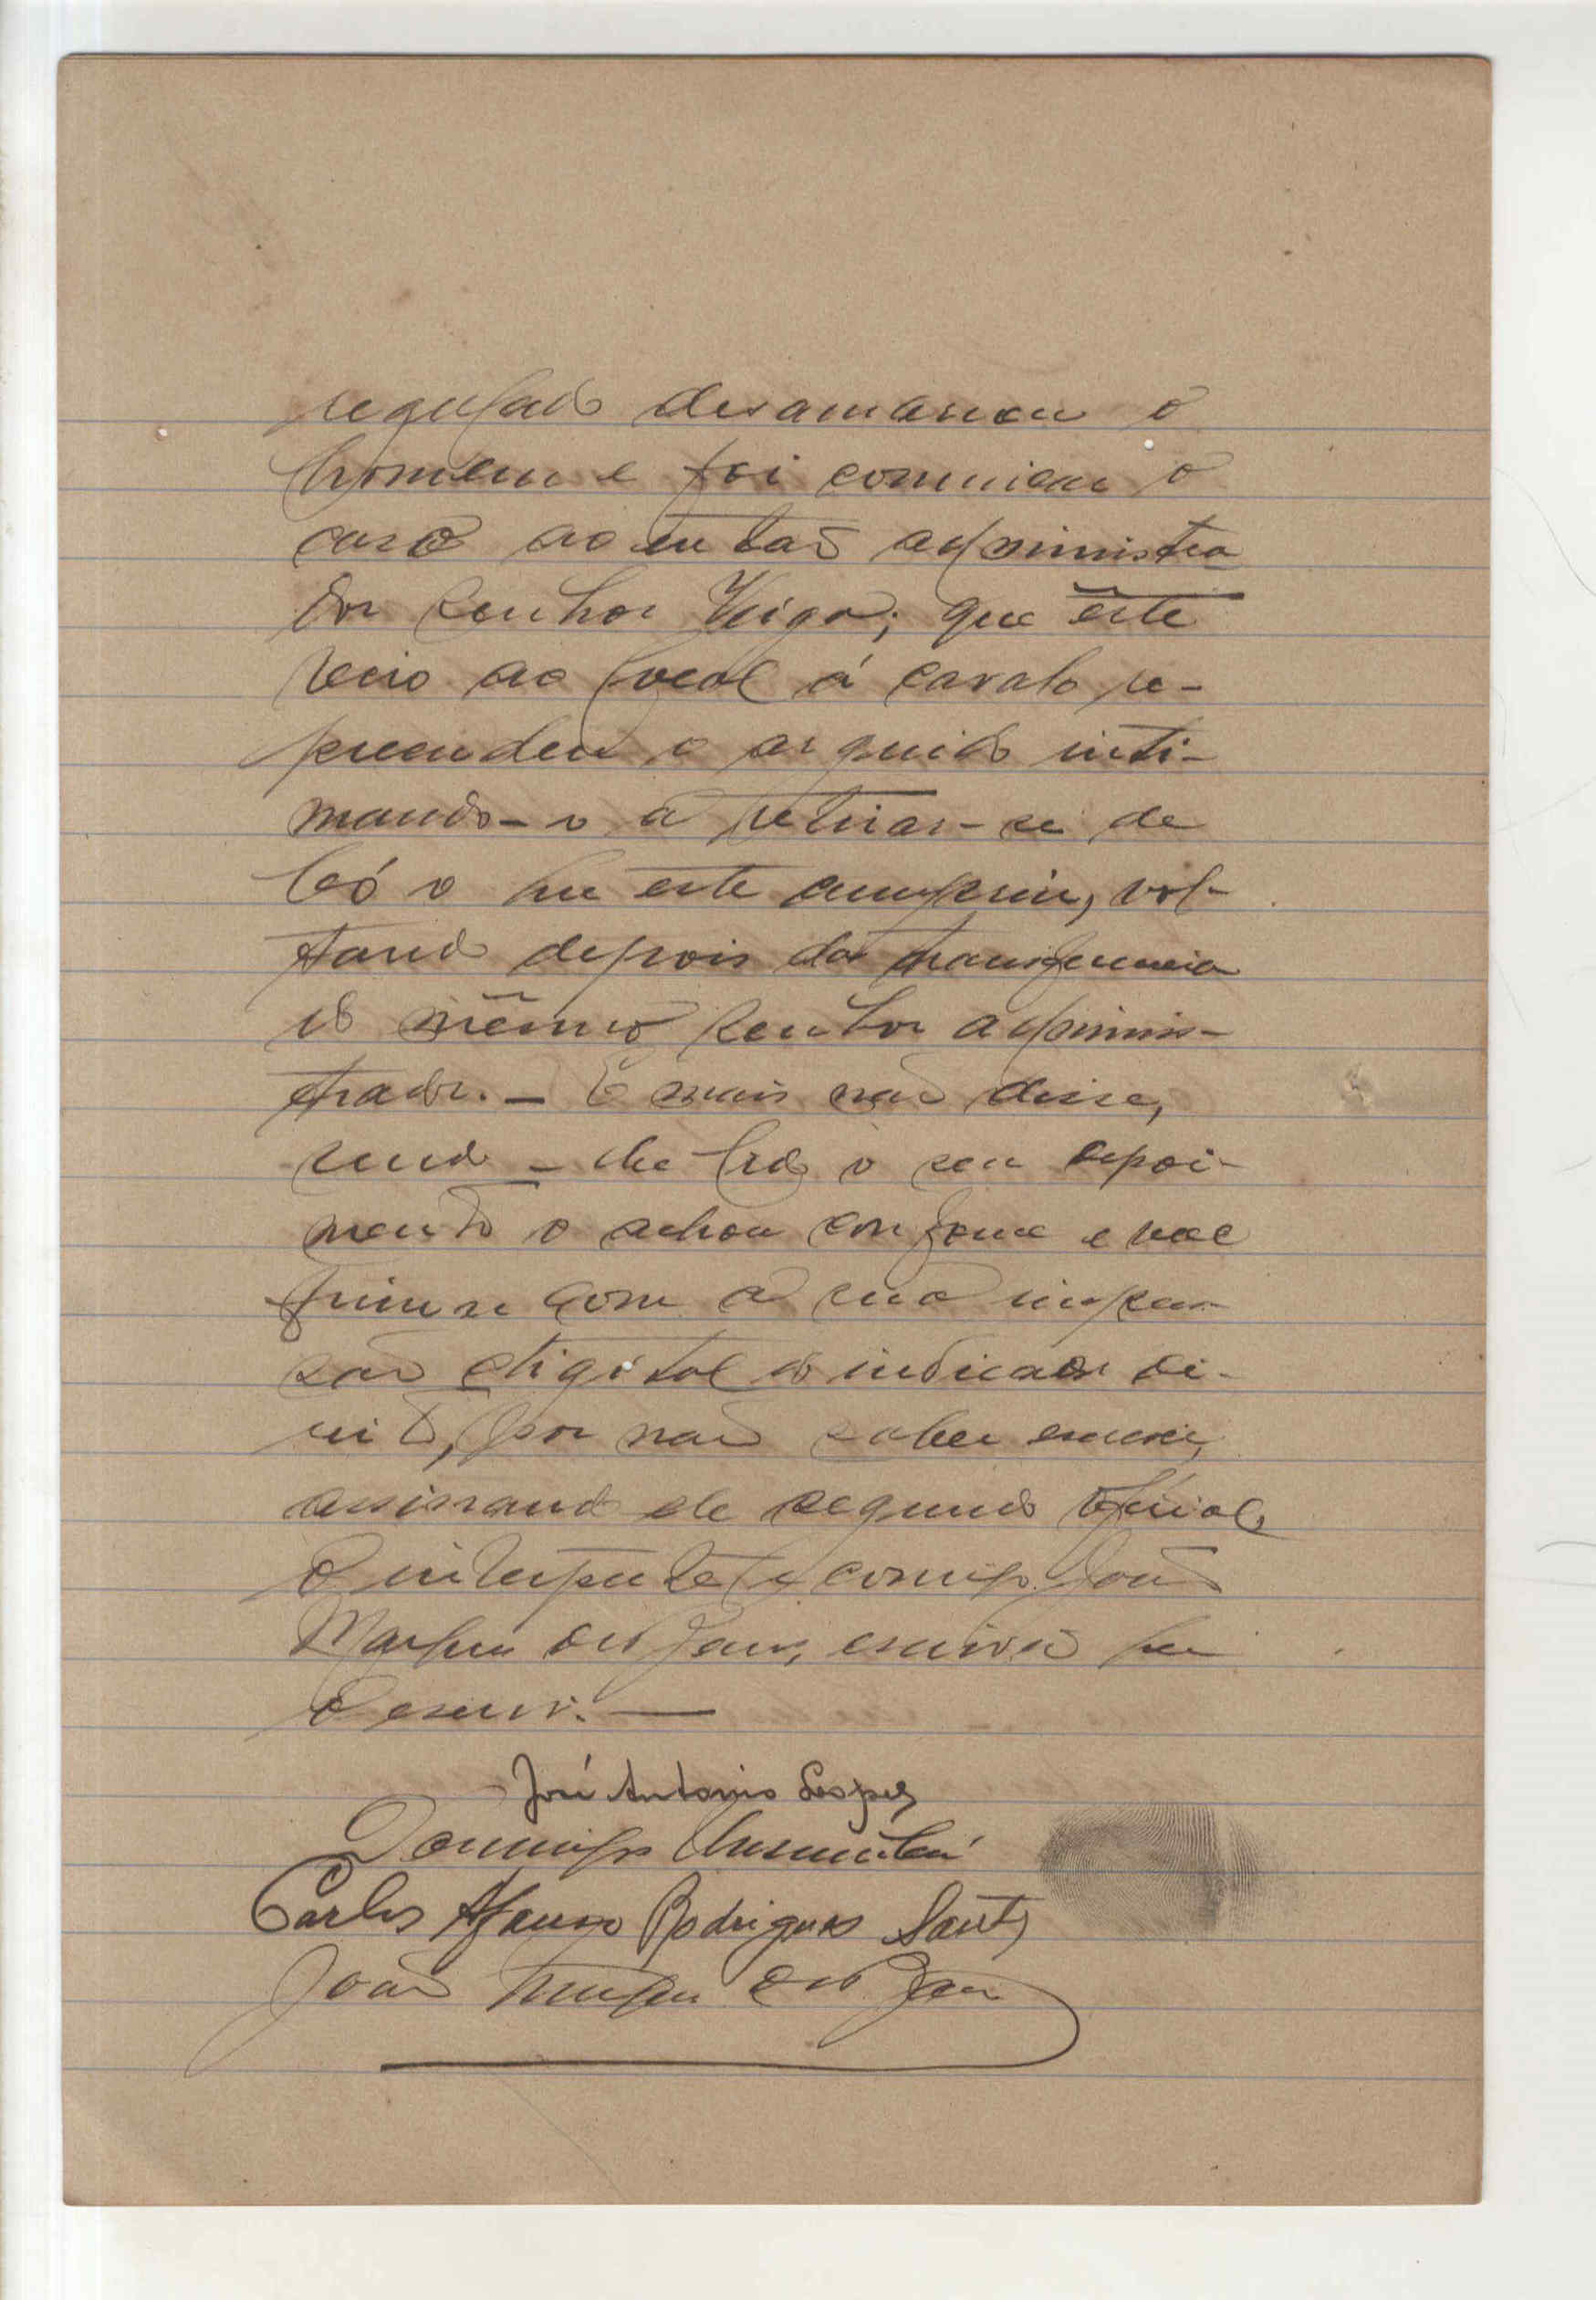 regulado desamarrou o
homem e foi comunicar o
caso ao então administra
dor senhor Veiga; que êste
veio ao local á cavalo re-
preendeu o arguido inti-
mando-o a retirar-se de
Có o que este cumpriu, vol-
tando depois da transferencia
do mêsmo senhor adminis-
trador. — E mais não disse,
sendo-lhe lido o seu depoi-
mento o achou conforme e vae
firmar com a sua impres-
são digital do indicador di-
reito, por não saber escrever,
assinando ele segundo oficial,
o interprete e comigo João
escrivão que
o escrevi. —
José Antonio Lopes
Domingos
Carlos Afonso Rodrigues Santos
João